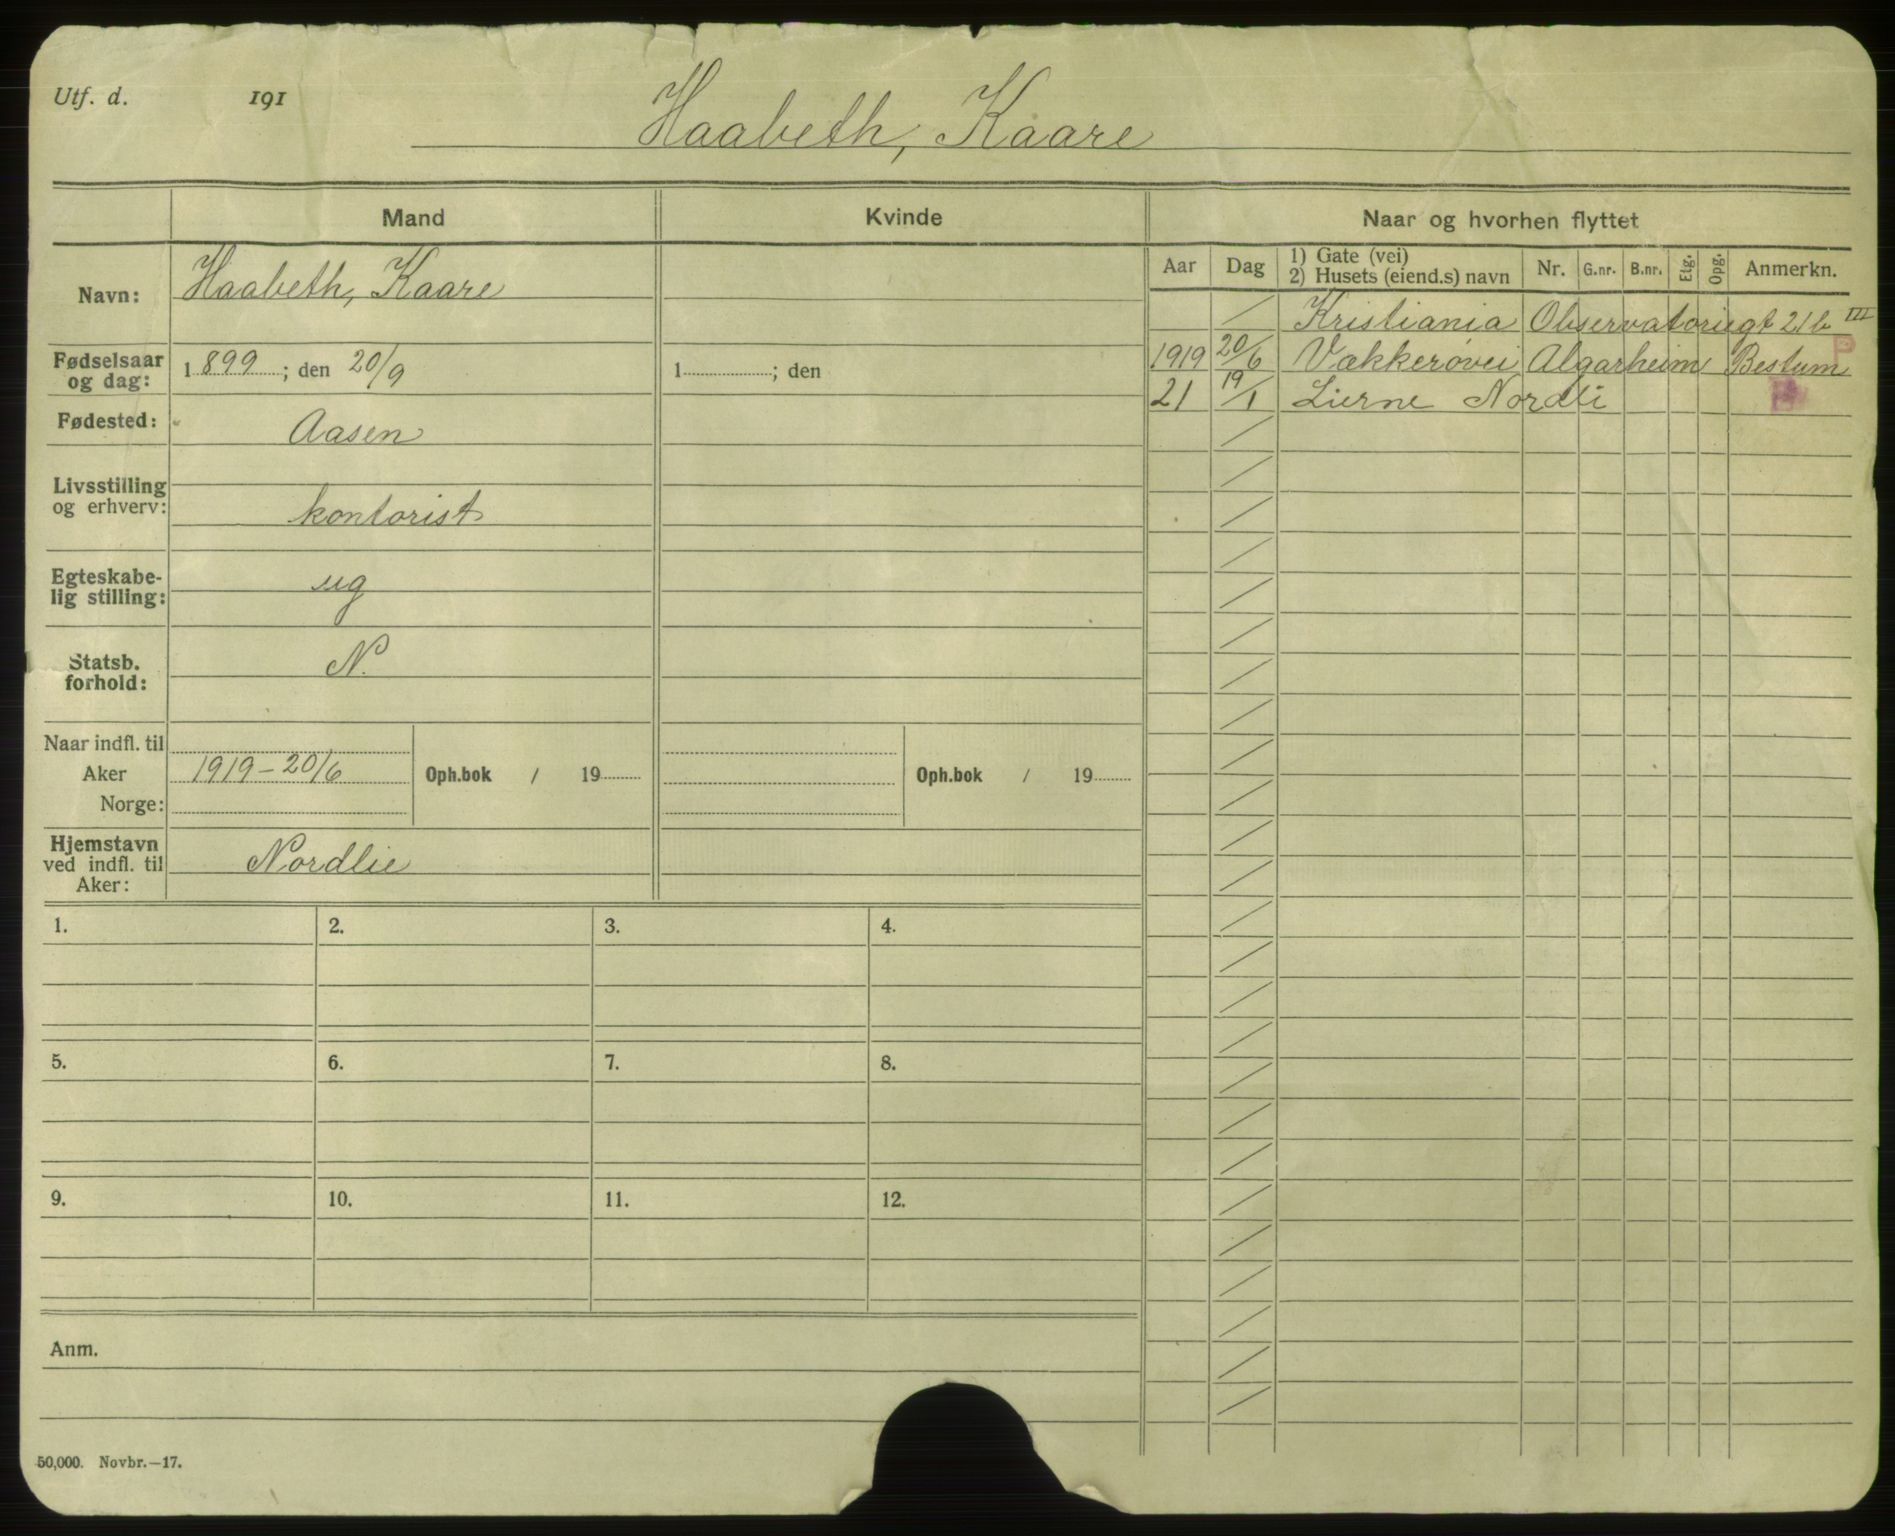 Utf. d. 191
Haabeth, Kaare
Mand
Kvinde
Naar og hvorhen flyttet
Navn: Haabeth, Kaare
Fødselsaar og dag: 1 899 ; den 20/9
1 ; den
Fødested: Aasen
Livsstilling og erhverv: kontorist
Egteskabe-
lig stilling: ug
Statsb.
forhold: N.
Naar indfl. til
Aker 1919-20/6 Oph.bok / 19
Oph.bok / 19
Norge:
Hjemstavn
ved indfl. til
Aker: Nordlie
Aar Dag 1) Gate (vei)
2) Husets (eiend.s) navn Nr. G.nr. B.nr. Etg. Opg. Anmerkn.
/ Kristiania Observatoriegt 21b III
1919 20/6 Vækkerøvei Algarheim Bestum P
21 19/1 Lierne Nordli
1. 2. 3. 4.
5. 6. 7. 8.
9. 10. 11. 12.
Anm.
50,000. Novbr.—17.